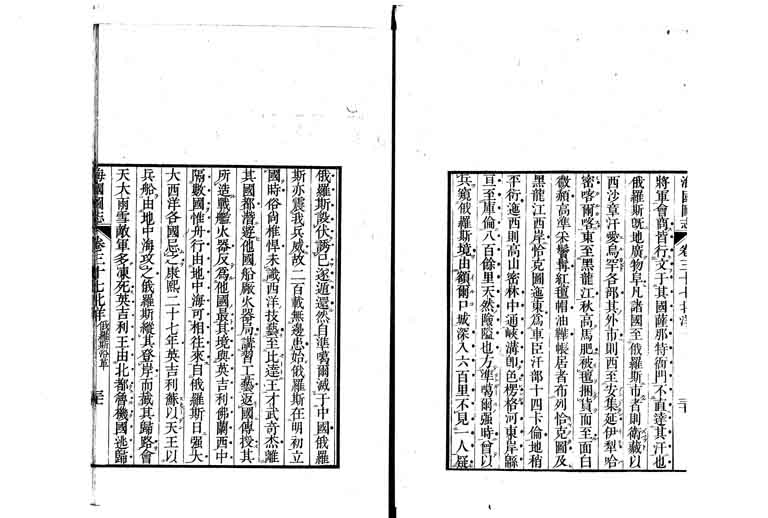 將軍會商皆行文于其國薩那特衙門不直達其汗也
俄羅斯既地廣物阜凡諸國至俄羅斯市者則衛藏以
西沙章汗愛烏罕各部其外市則西至安集延伊犁哈
密喀爾喀東至黑龍江秋高馬肥被氊捆貨而至面白
微頳高準朱髮紅氊帽油鞾帳居者布列恰克圖及
黑龍江西岸恰克圖迤東為車臣汗部十四卡倫地稍
平衍迤西則高山密林中通峽溝卽色楞格河東岸緜
亘至庫倫八百餘里天然險隘也方準噶爾强時曾以
兵窺俄羅斯境由額爾口城深入六百里不見一人疑
俄羅斯設伏誘已遂遁還然自準噶爾滅于中國俄羅
斯亦震我兵威故二百載無邊患始俄羅斯在明初立
國時俗尚椎悍未識西洋技藝至比達王才武奇杰離
其國都潛遊他國船厰火器局講習工藝返國傳授其
所造戰艦火器反為他國最其境與英吉利佛蘭西中
隔數國惟舟行由地中海可相往來自俄羅斯日强大
大西洋各國忌之康熙二十七年英吉利蘇以天王以
兵船由地中海攻之俄羅斯縱其登岸而截其歸路會
天大雨雪敵軍多凍死英吉利王由北都魯機國逃歸
海國圖志 卷三十七 北洋 俄羅斯沿革